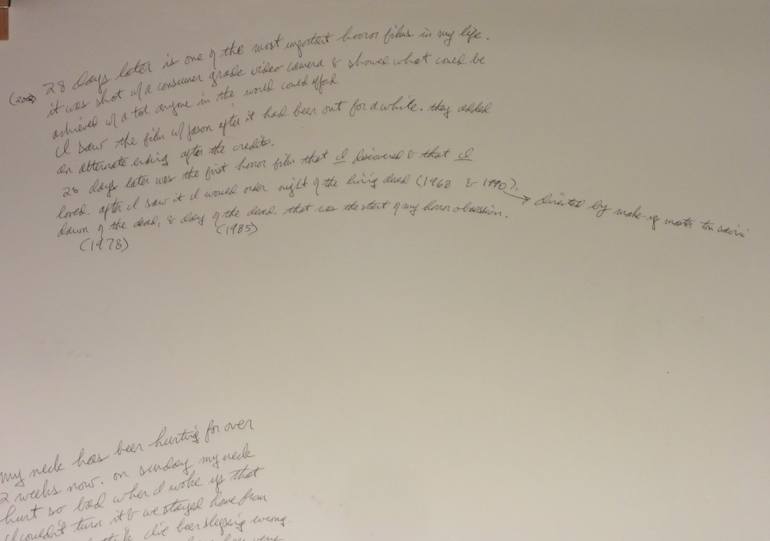 28 days later is one of the most important horror films in my life.
(2002) it was shot w/ a consumer grade video camera & showed what could be
achieved w/ a tool anyone in the world could afford
I saw the film w/ jason after it had been out for a while. they added
an alternate ending after the credits.
28 days later was the first horror film that I discovered & that I
loved. after I saw it I would order night of the living dead (1968 & 1990), → directed by make-up master tom savini
dawn of the dead, & day of the dead. that was the start of my horror obsession.
(1978) (1985)
my neck has been hurting for over
2 weeks now. on sunday my neck
hurt so bad when I woke up that
I couldn't turn it & we stayed home from
I've been sleeping wrong.